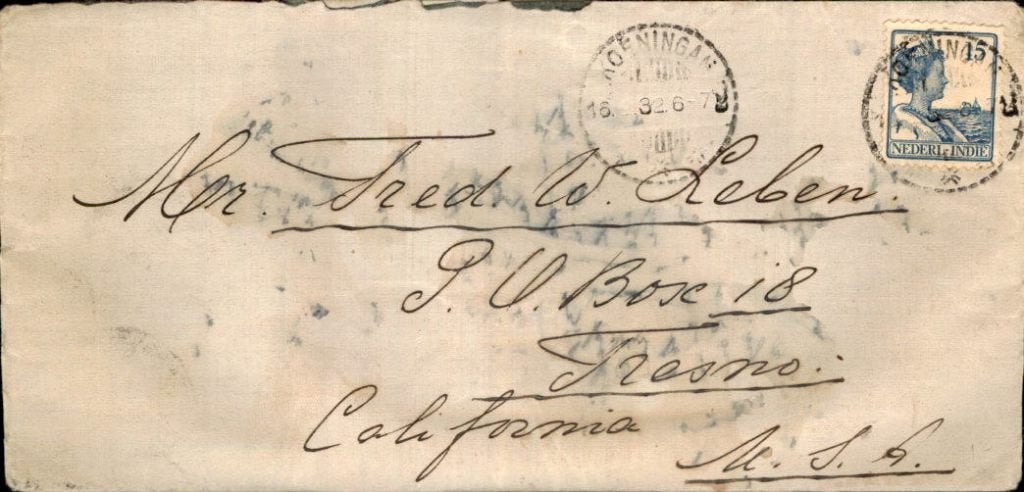 OENINGAN
16. 32.6-7
15
NEDERL-INDIE
Mr. Fred. W. Leben.
P. O. Box 18
Fresno.
California
U. S. A.